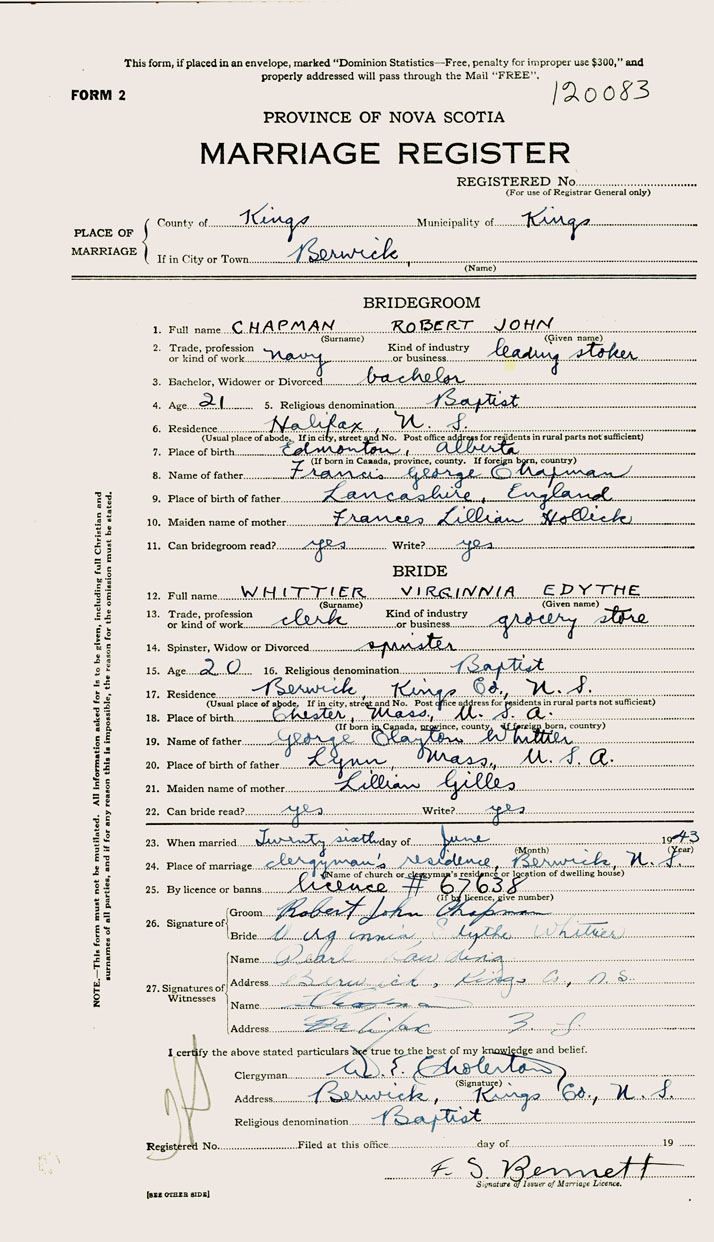 This form, if placed in an envelope, marked "Dominion Statistics—Free, penalty for improper use $300," and
properly addressed will pass through the Mail "FREE".
FORM 2
120083
PROVINCE OF NOVA SCOTIA
MARRIAGE REGISTER
REGISTERED No.
(For use of Registrar General only)
PLACE OF MARRIAGE
County of Kings Municipality of Kings
If in City or Town Berwick,
(Name)
BRIDEGROOM
1. Full name CHAPMAN ROBERT JOHN
(Surname) (Given name)
2. Trade, profession or kind of work navy Kind of industry or business leading stoker
3. Bachelor, Widower or Divorced bachelor
4. Age 21 5. Religious denomination Baptist
6. Residence Halifax, N. S.
(Usual place of abode. If in city, street and No. Post office address for residents in rural parts not sufficient)
7. Place of birth Edmonton, Alberta
(If born in Canada, province, county. If foreign born, country)
8. Name of father Francis George Chapman
9. Place of birth of father Lancashire, England
10. Maiden name of mother Frances Lillian Hollick
11. Can bridegroom read? yes Write? yes
BRIDE
12. Full name WHITTIER VIRGINNIA EDYTHE
(Surname) (Given name)
13. Trade, profession or kind of work clerk Kind of industry or business grocery store
14. Spinster, Widow or Divorced spinster
15. Age 20 16. Religious denomination Baptist
17. Residence Berwick, Kings Co., N. S.
(Usual place of abode. If in city, street and No. Post office address for residents in rural parts not sufficient)
18. Place of birth Chester, Mass, U. S. A.
(If born in Canada, province, county. If foreign born, country)
19. Name of father George Clayton Whittier
20. Place of birth of father Lynn, Mass., U. S. A.
21. Maiden name of mother Lillian Gilles
22. Can bride read? yes Write? yes
23. When married Twenty sixth day of June 1943
(Month) (Year)
24. Place of marriage clergyman's residence, Berwick, N. S.
(Name of church or clergyman's residence or location of dwelling house)
25. By licence or banns licence # 67638
(If by licence, give number)
26. Signature of
Groom Robert John Chapman
Bride Virginnia Edythe Whittier
27. Signatures of Witnesses
Name Pearl
Address Berwick, Kings Co, N.S.
Name
Address Halifax N. S.
I certify the above stated particulars are true to the best of my knowledge and belief.
Clergyman W. E. Cholerton
(Signature)
Address Berwick, Kings Co., N. S.
Religious denomination Baptist
Registered No. Filed at this office day of 19
F. S. Bennett
Signature of Issuer of Marriage Licence.
[SEE OTHER SIDE]
NOTE.—This form must not be mutilated. All information asked for is to be given, including full Christian and
surnames of all parties, and if for any reason this is impossible, the reason for the omission must be stated.